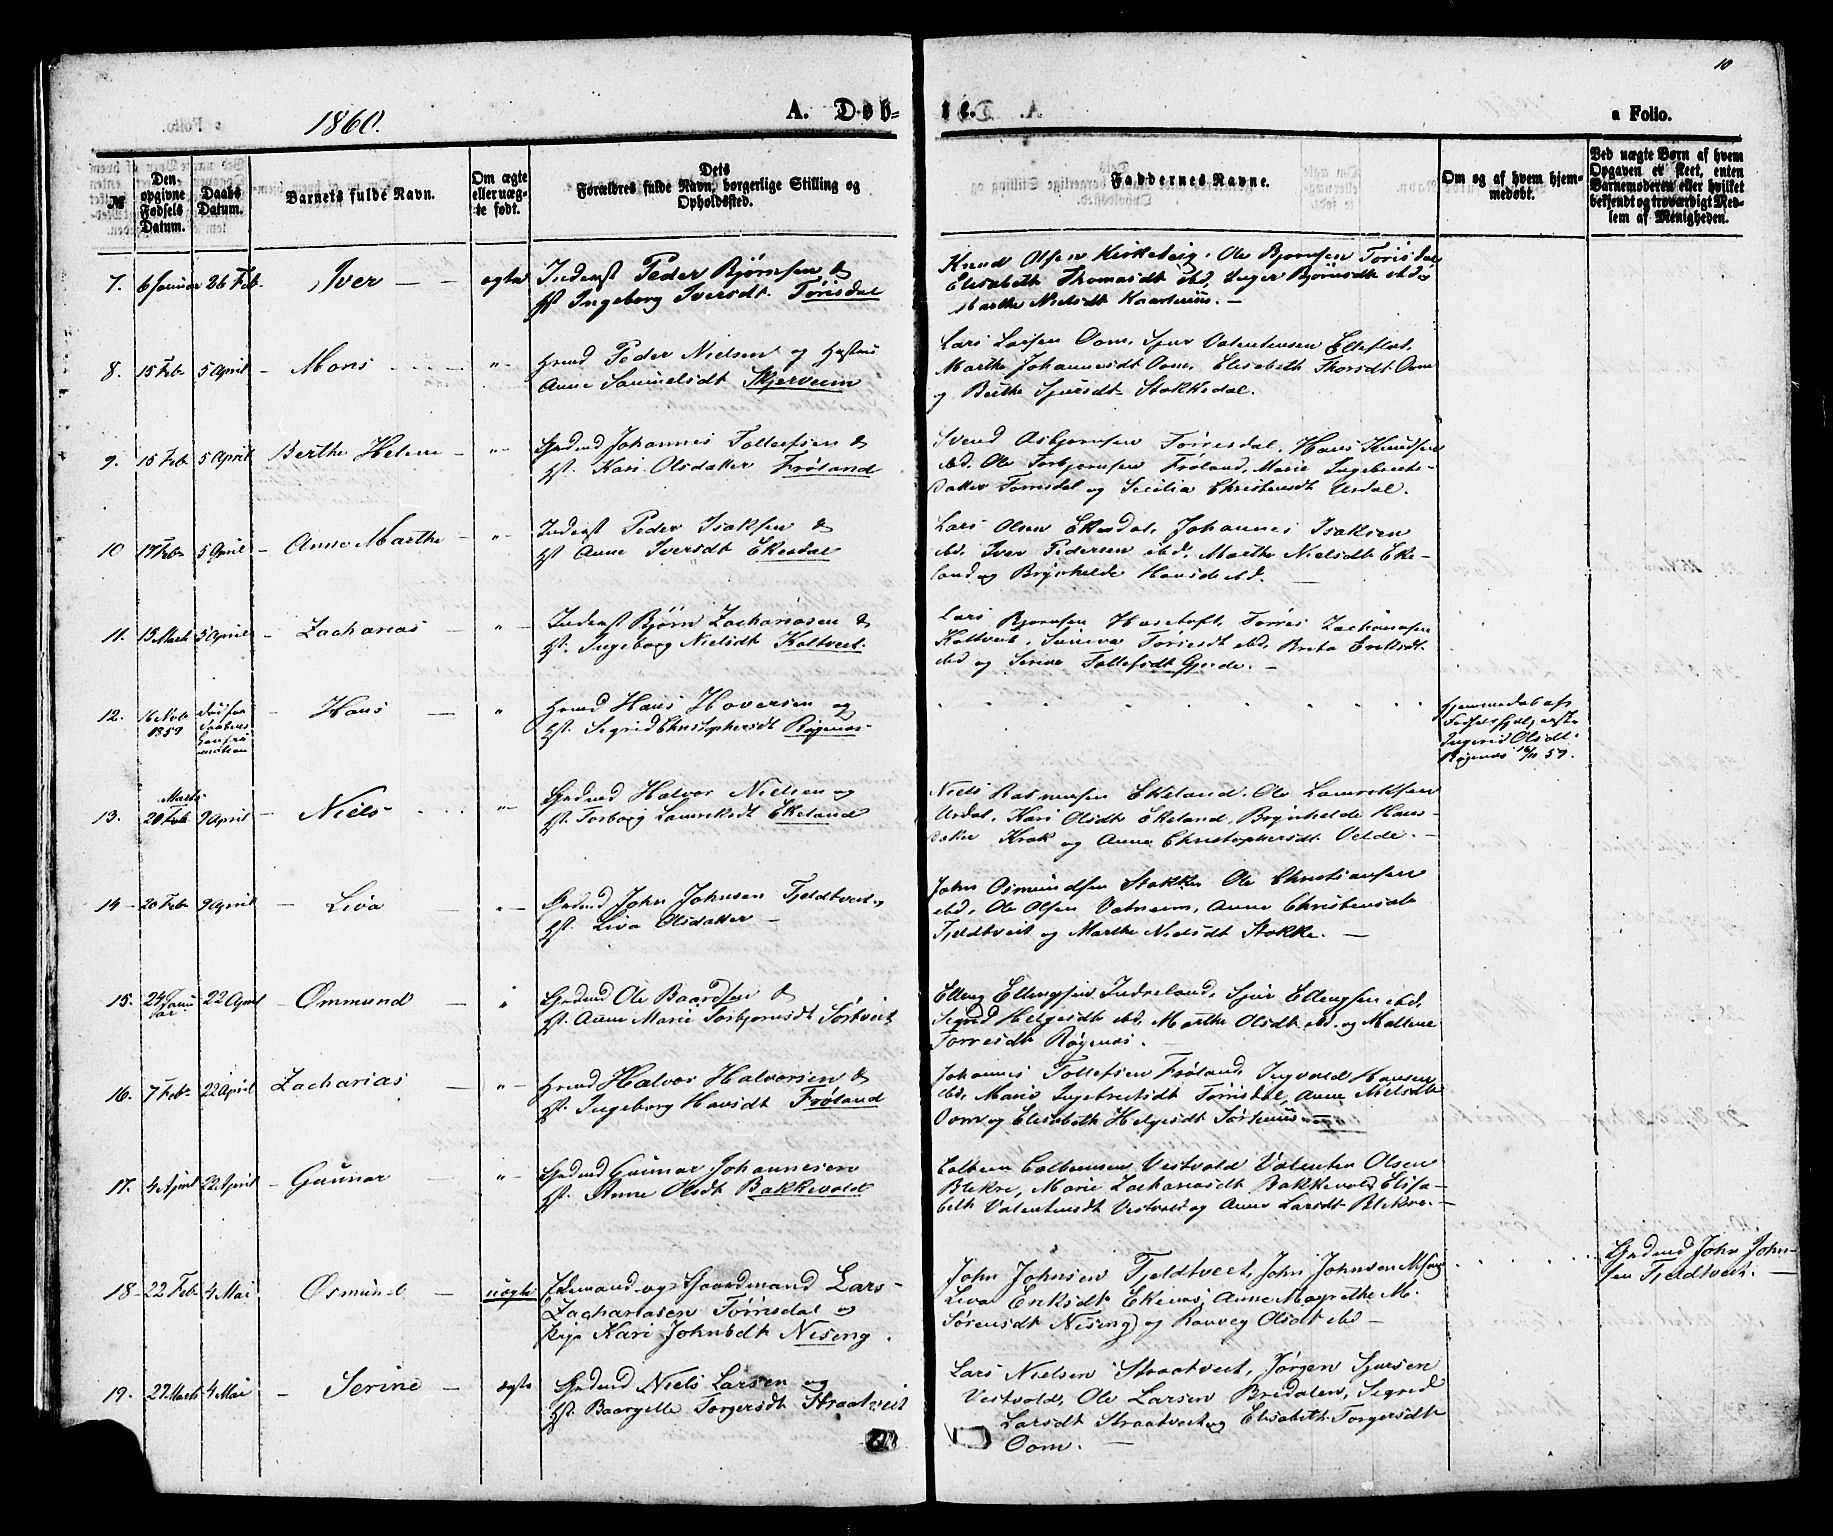 10
1860.
A. Døb-
te.
a Folio.
№
Den opgivne Fødsels Datum.
Daabs Datum.
Barnets fulde Navn.
Om ægte eller uægte født.
Dets Forældres fulde Navn, borgerlige Stilling og Opholdssted.
Faddernes Navne.
Om og af hvem hjemmedøbt.
Ved uægte Børn af hvem Opgaven er skeet, enten Barnemoderen eller hvilket bekjendt og troværdigt Medlem af Menigheden.
7. 6 Januar 26 Feb. Iver — ægte Inderst Peder Bjørnsen &
Hst. Ingeborg Iversdt. Tørrisdal
Knud Olsen Kirketeig, Ole Bjørnsen Tørisdal
Elisabeth Thomasdt ibd, Inger Bjørnsdt ibd,
Marthe Nielsdt Kaartenuus. —
8. 15 Feb 5 April — Mons — "— Hmd Peder Nielsen og Hustru
Anne Samuelsdt Skjerveim
Lars Larsen Oom, Sjur Valentinsen Elleflot,
Marthe Johannesdt Oom, Elisabeth Thorsdt Oom
og Berthe Sjursdt Stokkedal.
9. 15 Feb 5 April Berthe Helene — "— Grdmd Johannes Tollefsen &
Hst. Kari Olsdatter Frøland
Svend Asbjørnsen Tørresdal, Hans Knudsen
ibd. Ole Torbjørnsen Frøland, Marie Ingebrets-
datter Tørrisdal og Sicilia Christensdt Urdal.
10 17 Feb 5 April — Anne Marthe — "— Inderst Peder Isaksen &
Hst Anne Iversdt Ekesdal
Lars Olsen Ekesdal, Johannes Isaksen
ibd. Iver Pedersen ibd, Marthe Nielsdt Eke-
land og Brynhelde Hansdt ibd. —
11. 13 Marts 5 April — Zacharias — "— Inderst Bjørn Zachariasen &
Hst. Ingeborg Nielsdt Koltveit.
Lars Bjørnsen Hasetoft, Tørres Zachariasen
Koltveit, Suneva Tørresdt ibd, Breta Eriksdt
ibd og Serine Tollefsdt Gjerde. —
12. 16 Novb 1859 — Hans — " Hmd Hans Hoversen og
Hst. Sigrid Christophersdt Røgenæs
Hjemmedøbt af
Ingerid Olsdt
Røgenæs 16/11 59.
13. Marts
20 Feb 9 April — Niels . . . "— Grdmd Halvor Nielsen og
Hst. Torborg Lauritsdt Ekeland
Niels Rasmussen Ekeland, Ole Lauritsen
Urdal, Kari Olsdt Ekeland, Brynhelde Hans-
datter Krok og Anna Christophersdt Velde. —
14 — 20 Feb 9 April — Liva — "— Grdmd John Johnsen Tjeldtveit og
Hst. Liva Olsdatter —
John Osmundsen Stokke, Ole Christiansen
ibd, Ole Olsen Vatneim, Anne Christensdt
Tjeldtveit og Marthe Nielsdt Stokke. —
15. 24de Januar 22 April — Ommund — " Grdmd Ole Baardsen &
Hst. Anne Marie Torbjørnsdt Sørtveit
Elling Ellingsen Indreland, Sjur Ellingsen ibd,
Sigrid Helgesdt ibd, Marthe Olsdt ibd. og Maltene
Tørresdt Røgenæs.
16. 7 Feb 22 April Zacharias — "— Hmd Halvor Halvorsen &
Hst. Ingeborg Hansdt Frøland
Johannes Tollefsen Frøland, Ingvald Hansen
ibd, Marie Ingebretsdt Tørrisdal, Anne Nielsdt
Oom og Elisabeth Helgesdt
17. 4 April 22 April — Gunnar — "— Grdmd Gunnar Johannesen
Hst. Anne Olsdt Bakkevold
Colbein Colbeinsen Vestvold, Valentin Olsen
Blekre, Marie Zachariasdt Bakkevold, Elisa-
beth Valentinsdt Vestvold og Anne Larsdt Blekre. —
18 — 22 Feb 4 Mai — Osmund — uægte Edemand og Gaardmand Lars
Zachariasen Tørrisdal og
Pige Kari Johnsdt Niseng.
John Johnsen Tjeldtveit, John Johnsen
Liva Eriksdt Ekenæs, Anne Margrethe M.
Sørensdt Niseng og Ranveg Olsdt ibd —
Grdmd John John-
sen Tjeldtveit. —
19. 27 Marts 4 Mai — Serine — ægte Grdmd Niels Larsen og
Hst. Baargelle Torgersdt Straatveit
Lars Nielsen Straatveit, Jørgen Sjursen
Vestvold, Ole Larsen Bredalen, Sigrid
Larsdt Straatveit og Elisabeth Torgersdt
Oom. —